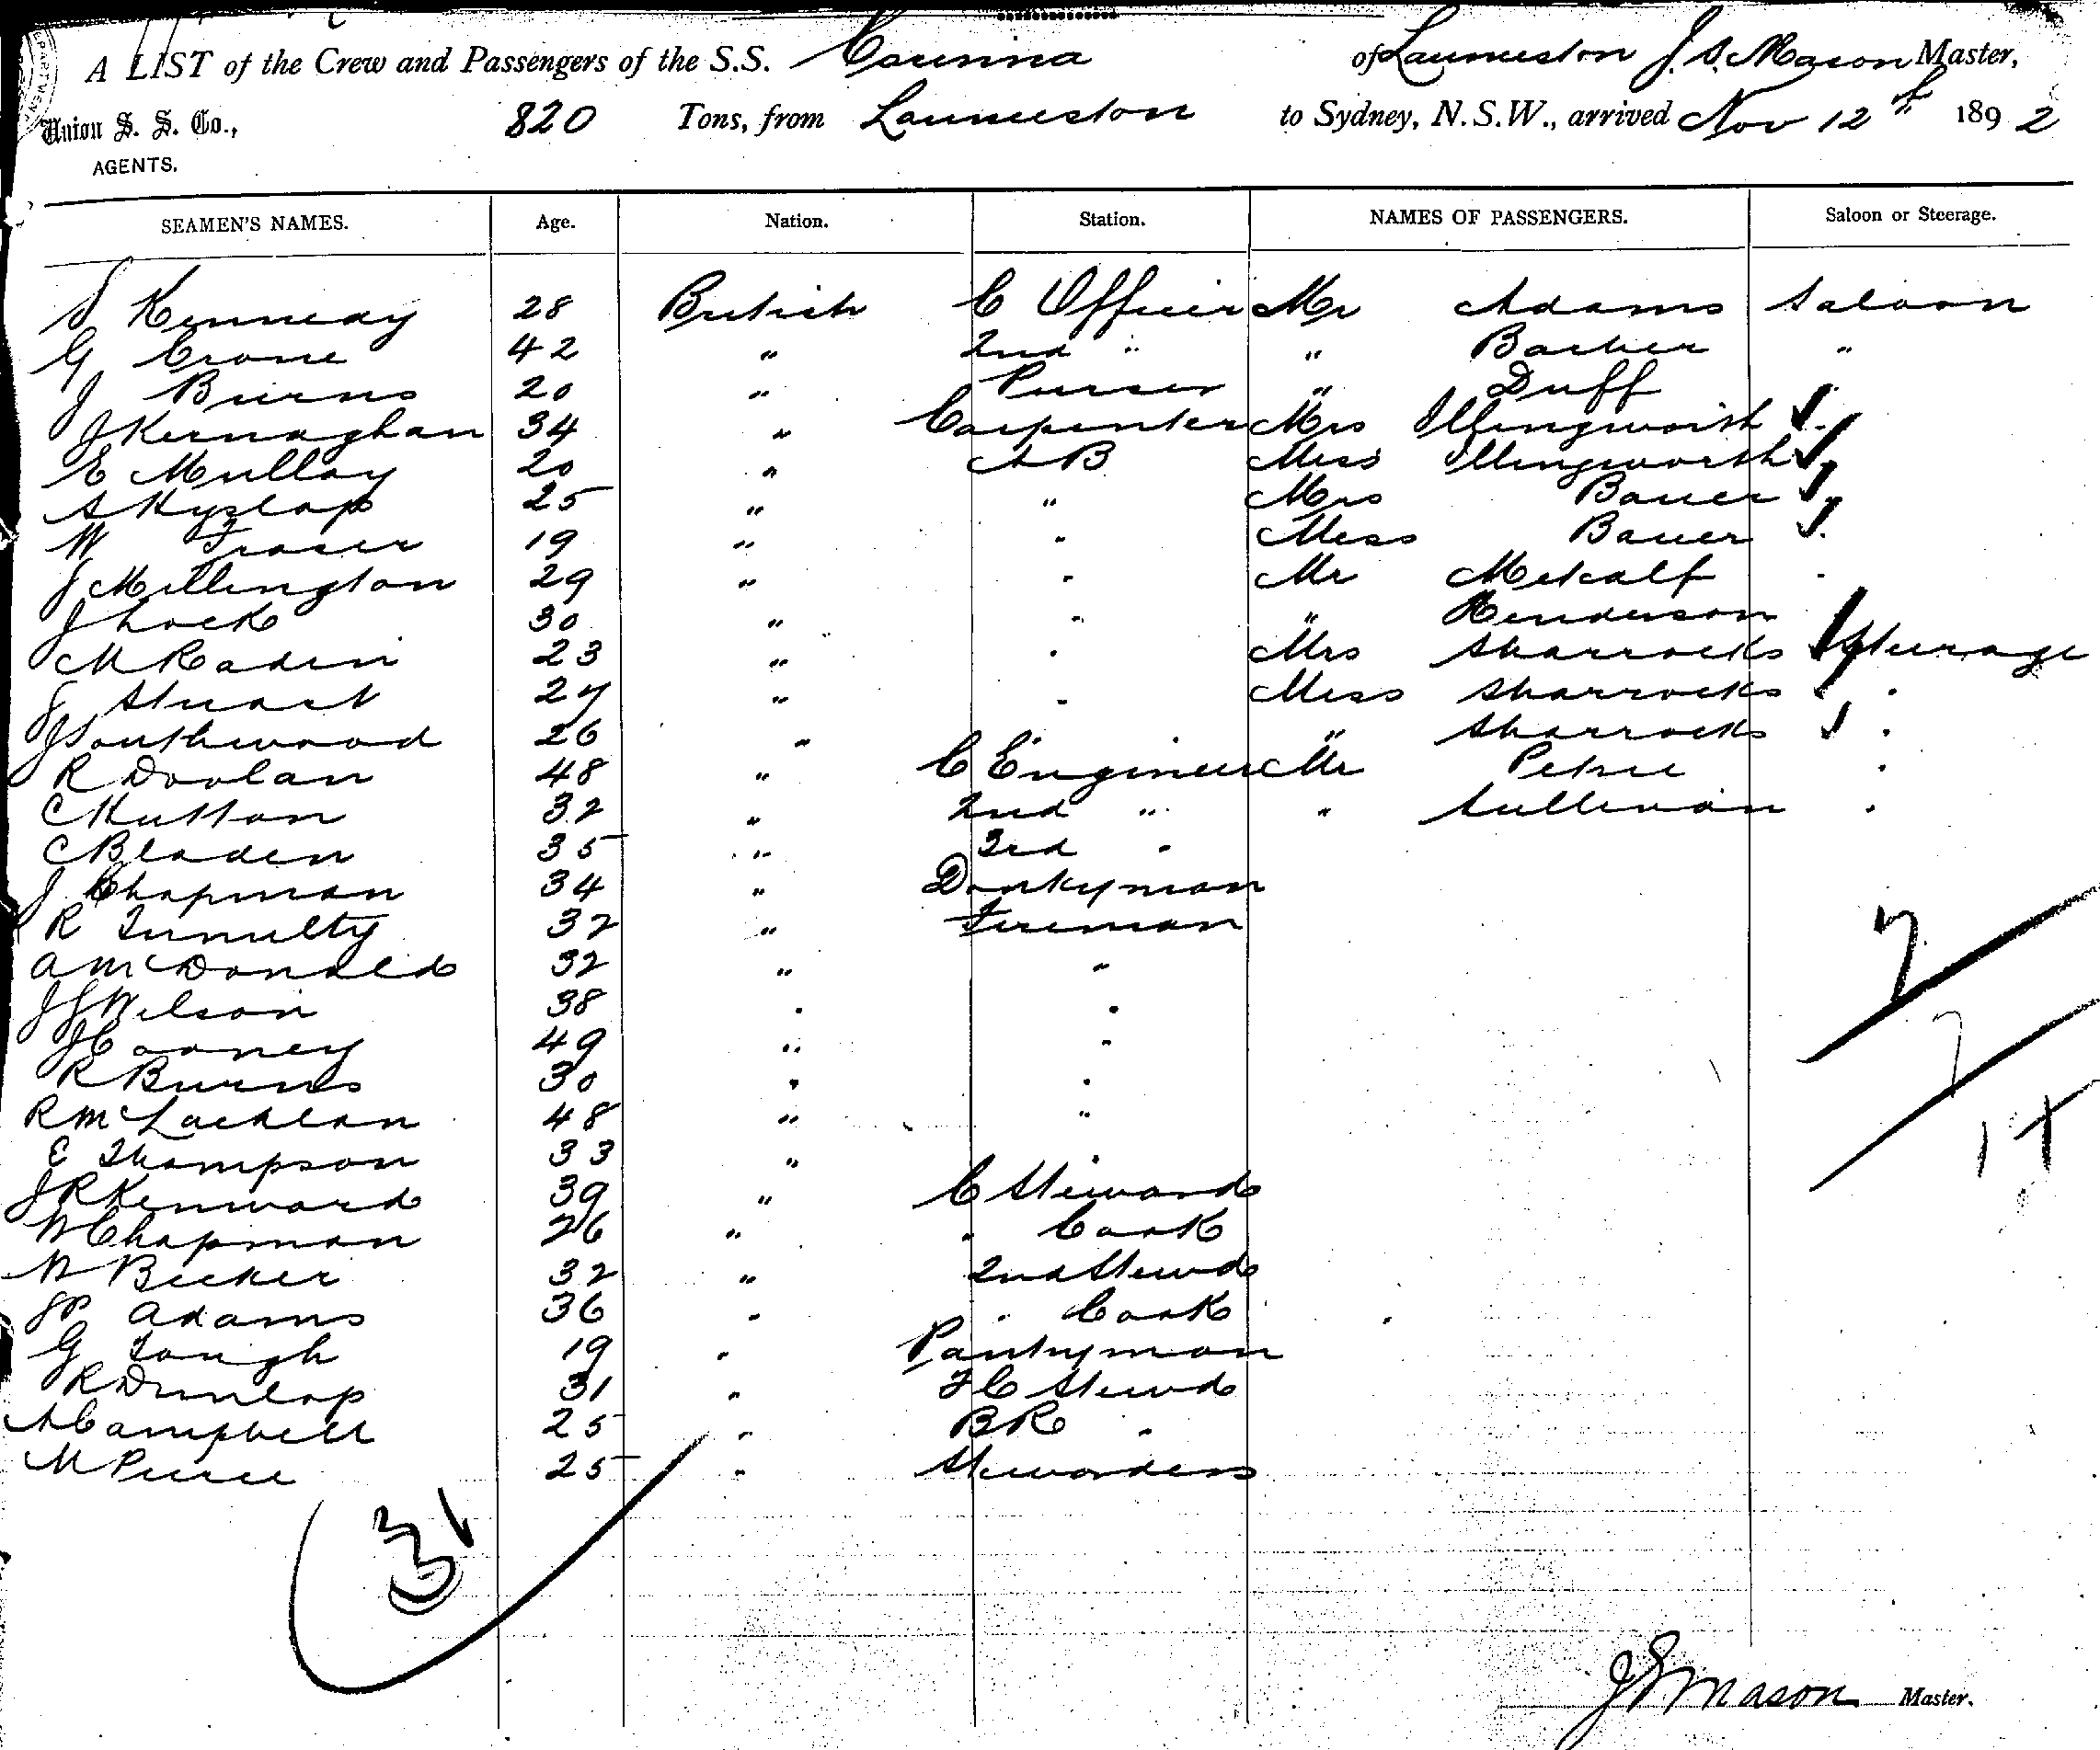 A LIST of the Crew and Passengers of the S.S. Corinna of Launceston J. S. Mason Master,
Union S. S. Co., 820 Tons, from Launceston to Sydney, N.S.W., arrived Nov 12th 1892
AGENTS.
SEAMEN'S NAMES. Age. Nation. Station. NAMES OF PASSENGERS. Saloon or Steerage.
S Kennedy 28 British C Officer Mr Adams Saloon
G Crone 42 " 2nd " " Barber "
J Burns 20 " Purser " Duff "
J Kernaghan 34 " Carpenter Mrs Illingworth "
E Mulloy 20 " AB Miss Illingworth "
A Hyslop 25 " " Mrs Bauer "
W Fraser 19 " " Miss Bauer "
J Millington 29 " " Mr Metcalf "
J Lock 30 " " " Henderson
M Radin 23 " " Mrs Sharrocks Steerage
J Stuart 27 " " Miss Sharrocks "
J Southwood 26 " " " Sharrocks "
R Doolan 48 " C Engineer Mr Petrie "
C Hutton 32 " 2nd " " Sullivan "
C Bladen 35 " 3rd "
J Chapman 34 " Donkyman
R Tumulty 32 " Fireman
A McDonald 32 " "
J J Wilson 38 " "
J Cooney 49 " "
R Burns 30 " "
R McLachlan 48 " "
E Thompson 33 " "
J R Kenward 39 " C Steward
W Chapman 26 " " Cook
W Becker 32 " 2nd Stewd
J P Adams 36 " " Cook
G Tough 19 " Pantryman
R Dunlop 31 " F C Stewd
A Campbell 25 " BR "
M Pierce 25 " Stewardess
7
7
14
31
J S Mason Master.